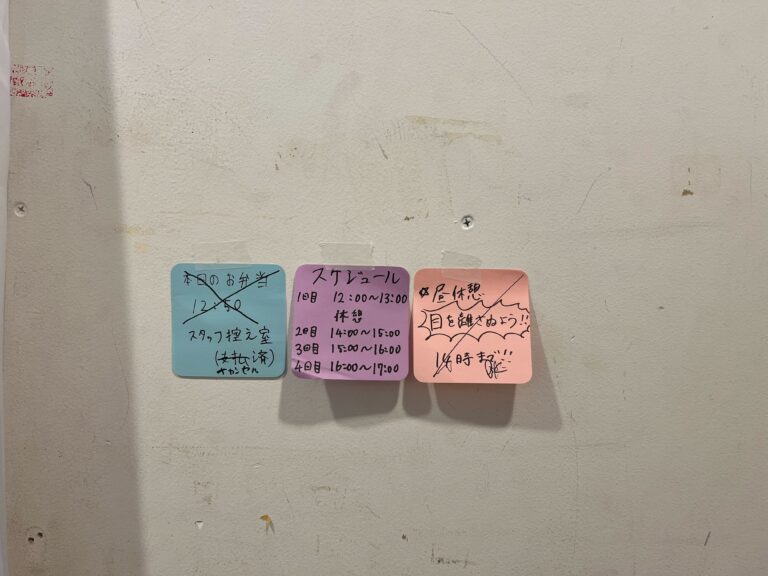 本日のお弁当
12:50
スタッフ控え室
(支払済)
キャンセル
スケジュール
1回目 12:00〜13:00
休憩
2回目 14:00〜15:00
3回目 15:00〜16:00
4回目 16:00〜17:00
☆昼休憩
目を離さぬよう!!
14時まで!!!